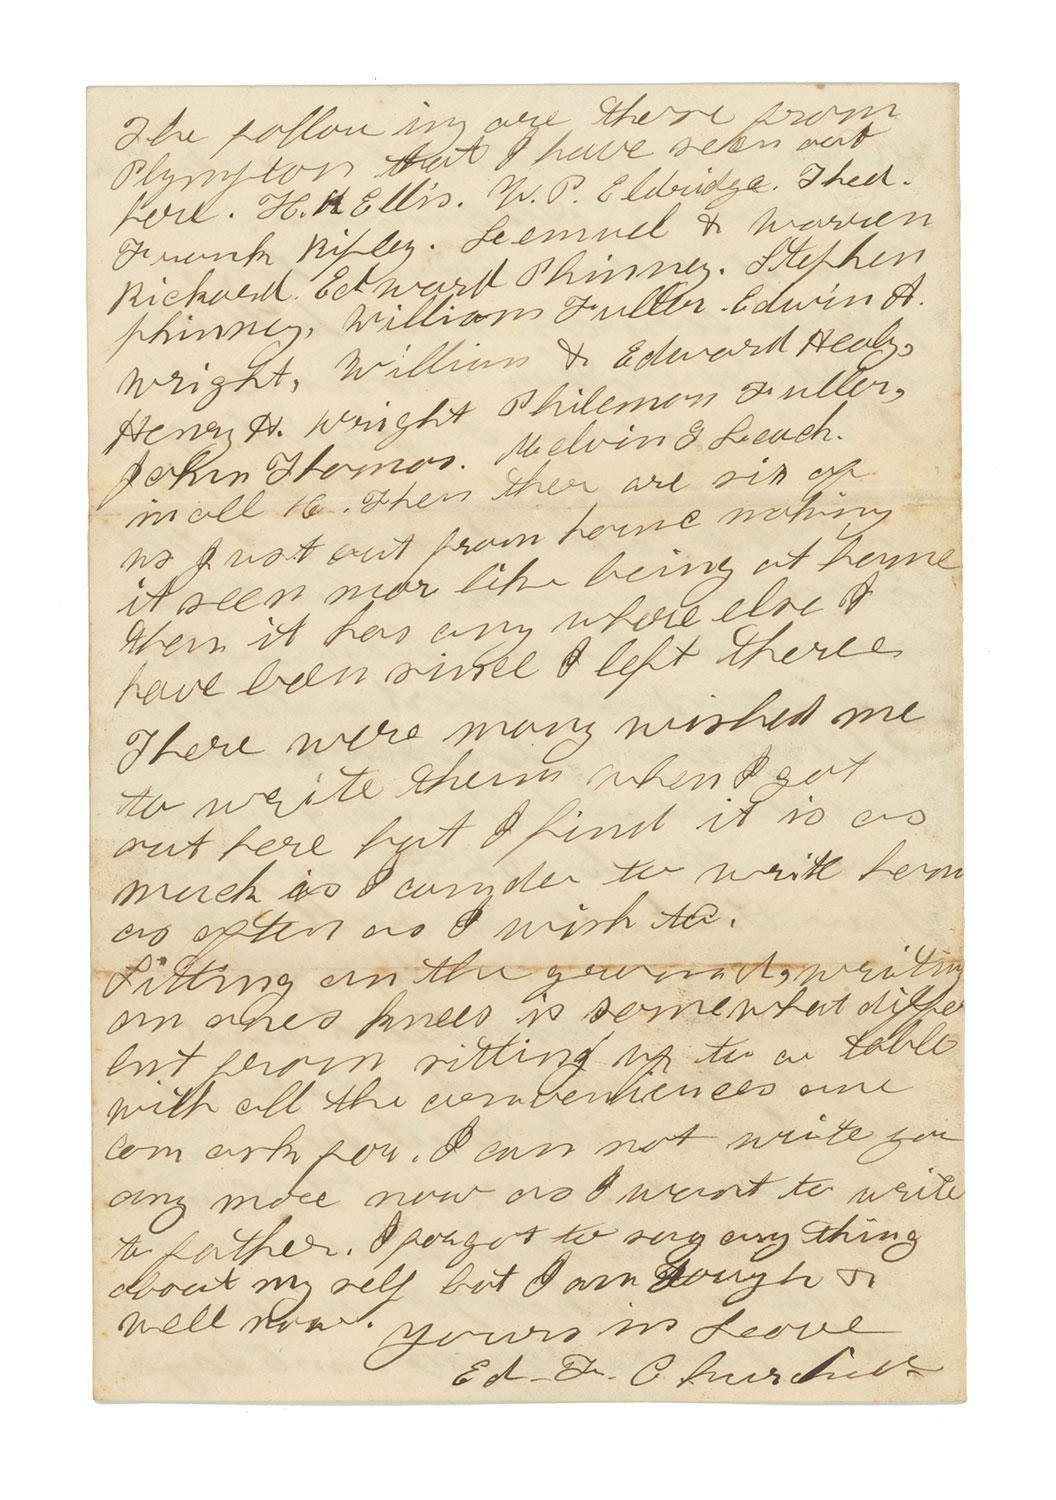 The follow ing are those from
Plympton that I have seen out
here. H. K Ellis. W. P. Eldridge. Thed.
Frank Ripley. Lemuel & Warren
Rickard. Edward Phinney. Stephen
phinney, William Fuller. Edwin A.
Wright, William & Edward Healy,
Henry H. Wright Philemon Fuller,
John Thomas. Melvin G Leach.
in all 16. Then ther are six of
us Just out from home making
it seem mor like being at home
then it has any where else I
have been since I left there
There were many wished me
to write them when I got
out here but I find it is as
much as I can do to write hom
as often as I wish to.
Sitting on the ground, writing
on ones knees is somewhat differ
ent from sitting up to a table
with all the conveniences one
can ask for. I can not write you
any more now as I want to write
to father. I forgot to say any thing
about my self but I am tough &
well now. Yours in Leove
Ed- F. Churchill